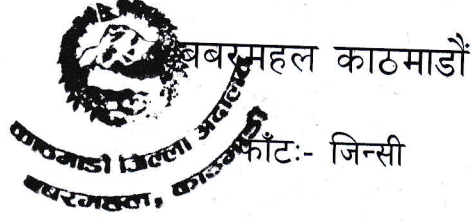 बबरमहल काठमाडौं
फाँटः- जिन्सी
काठमाडौं जिल्ला अदालत
बबरमहल, काठमाडौं